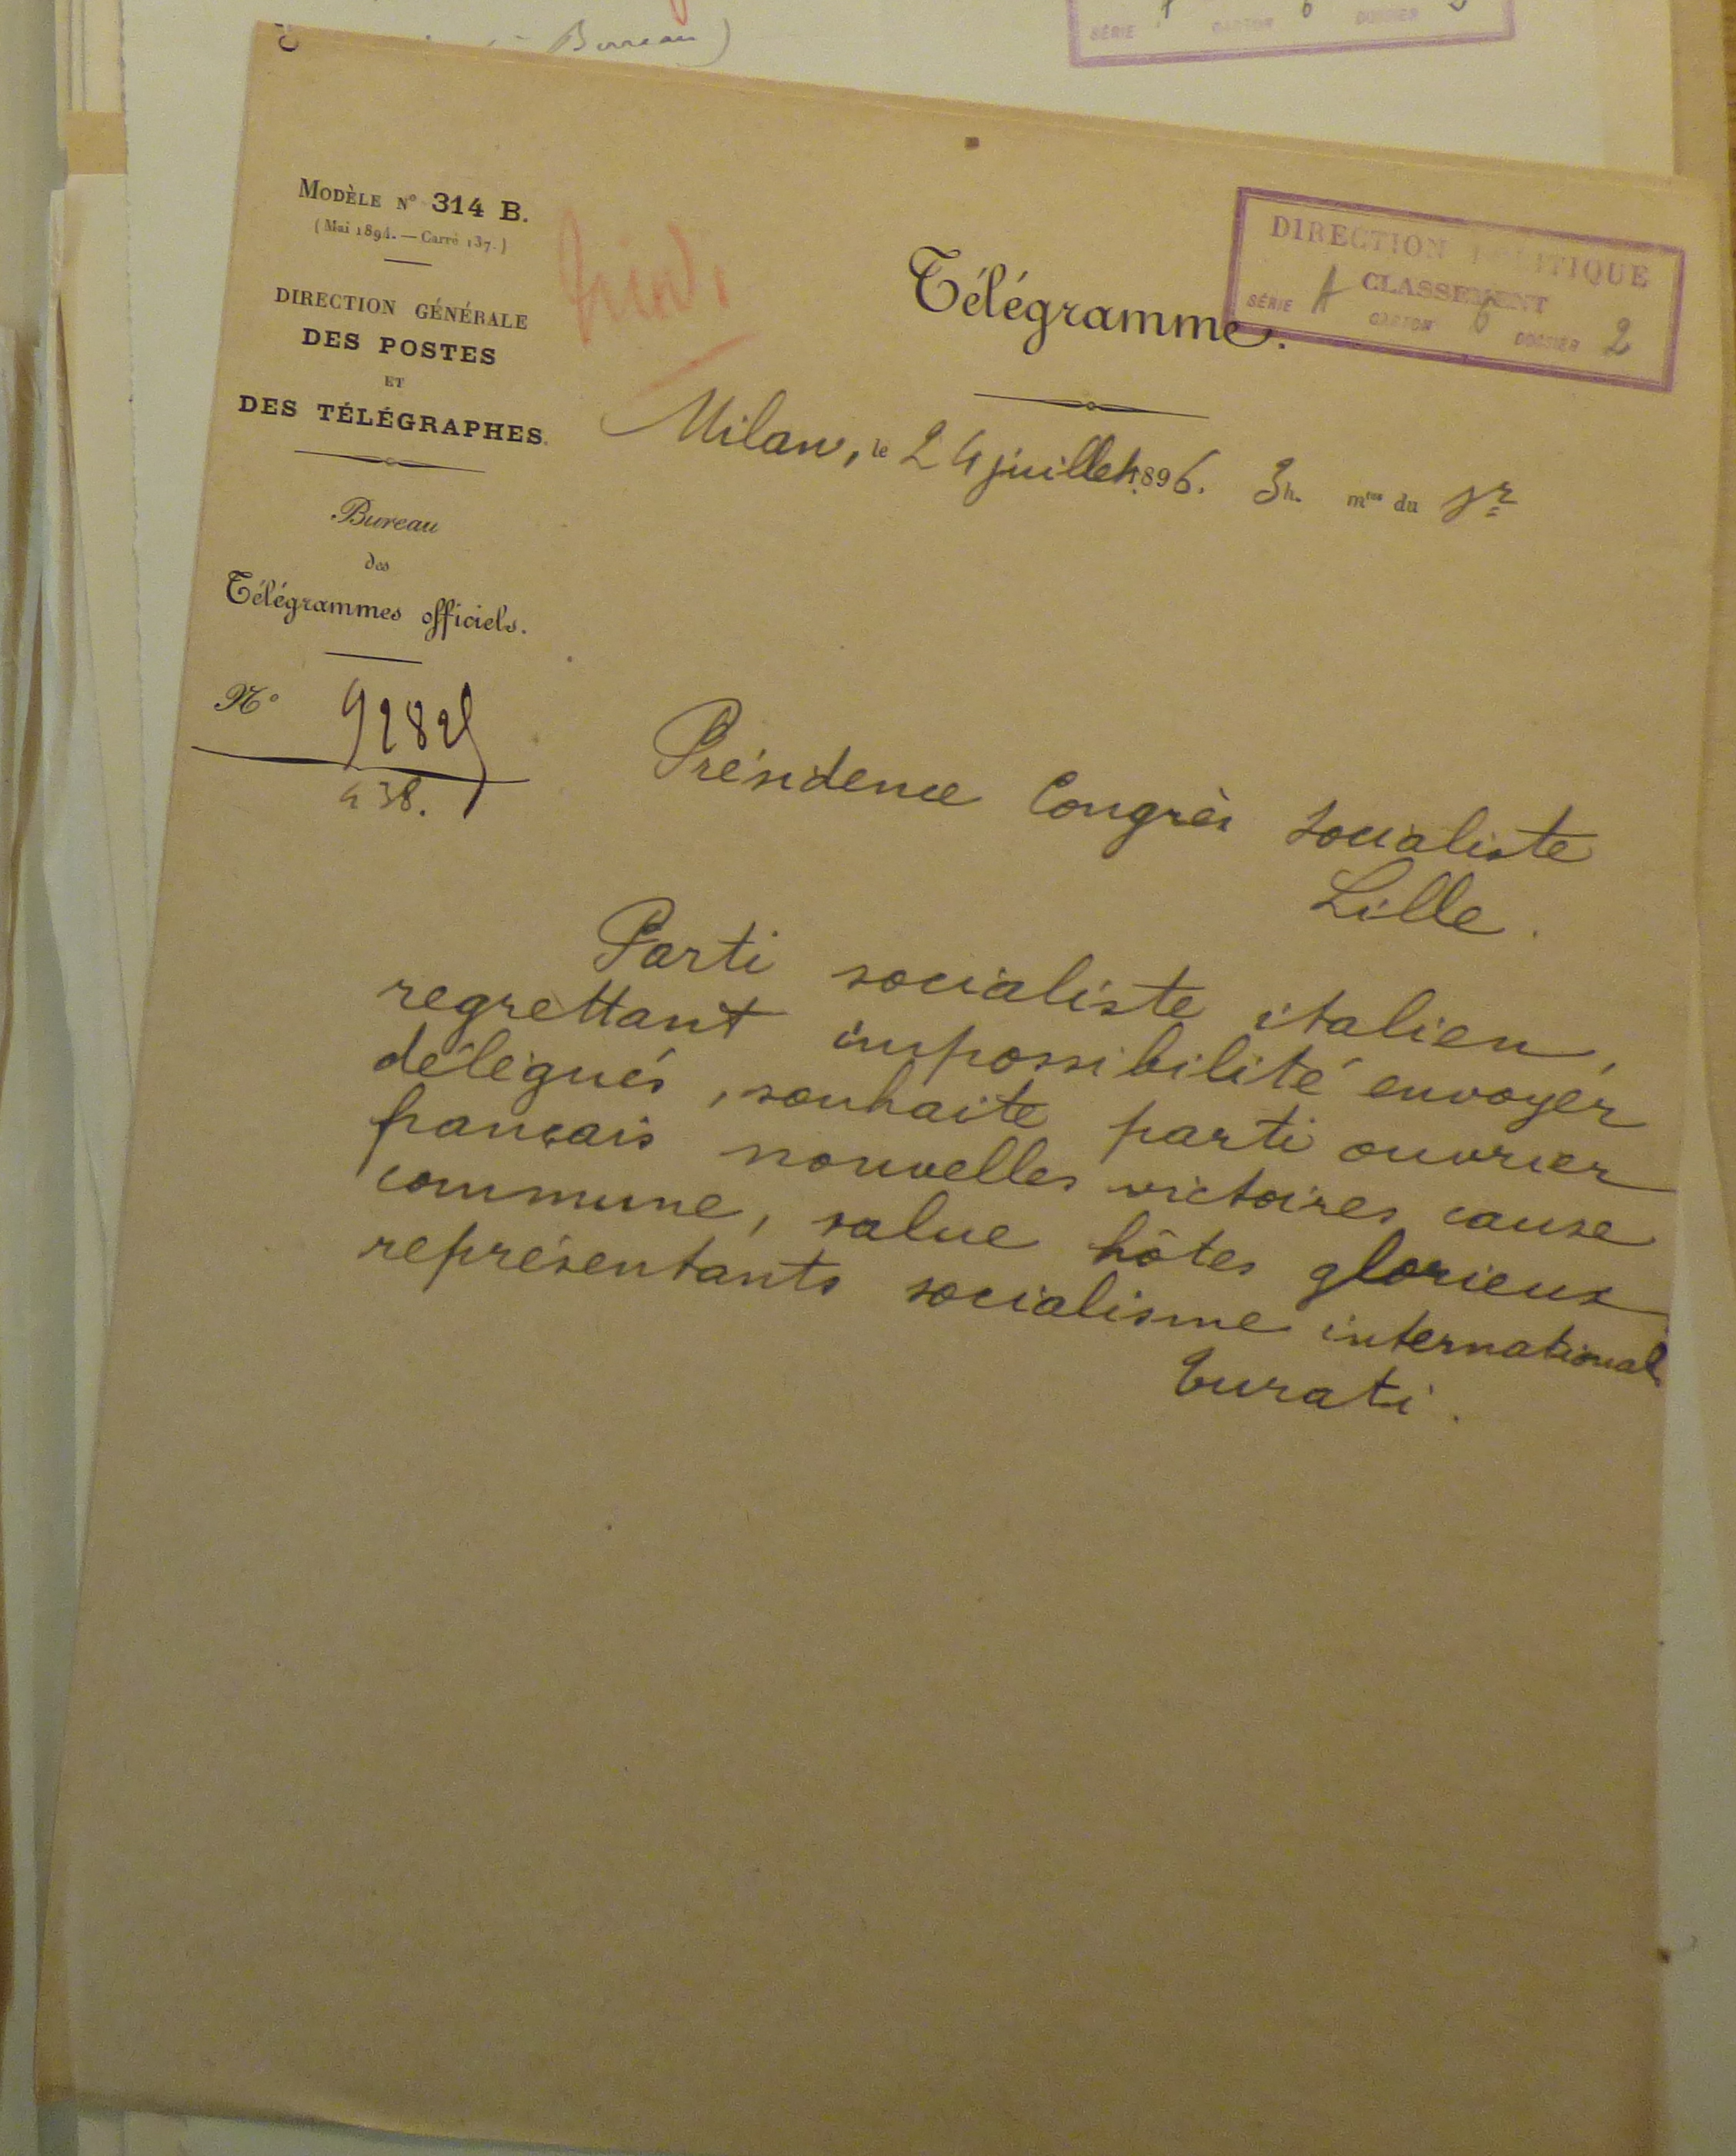 Bureau)
SÉRIE CARTON 6 DOSSIER
MODÈLE N° 314 B.
(Mai 1894. — Carré 137.)
DIRECTION GÉNÉRALE
DES POSTES
ET
DES TÉLÉGRAPHES.
Bureau
des
Télégrammes officiels.
N° 9282
438.
Télégramme.
DIRECTION POLITIQUE
CLASSEMENT
SÉRIE A CARTON 6 DOSSIER 2
Milan, le 24 juillet 1896. 3h. mtes du sr
Présidence Congrès socialiste
Lille.
Parti socialiste italien,
regrettant impossibilité envoyer
délégués, souhaite parti ouvrier
français nouvelles victoires cause
commune, salue hôtes glorieux
représentants socialisme international
Turati.